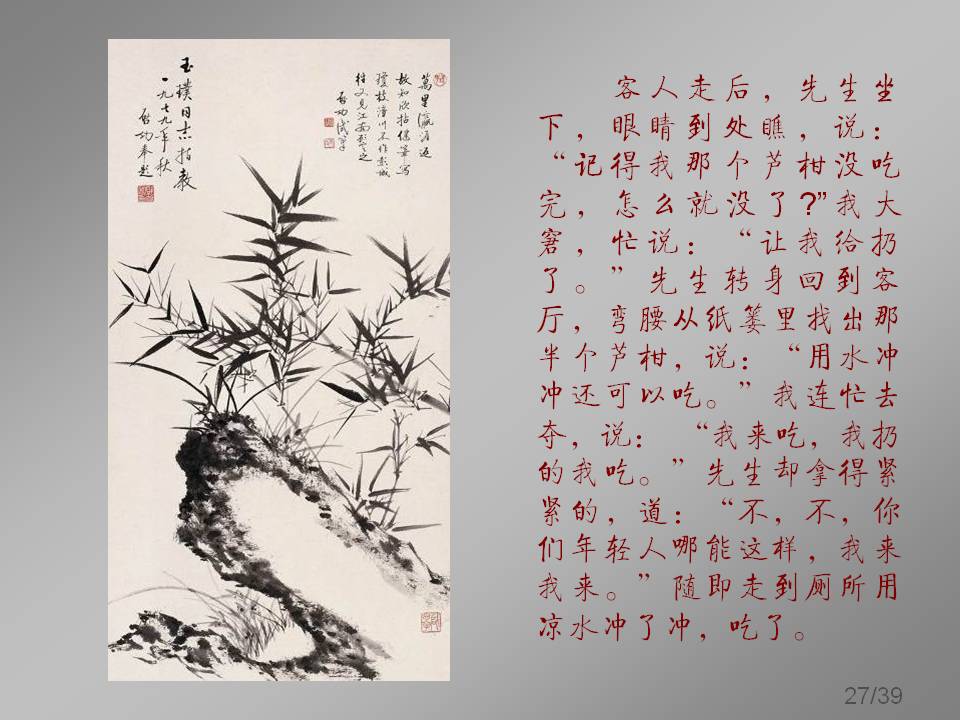 萬里
故知欣拈 寫
瓊枝 川不作彭城
又見江南
启功
玉璞同志指教
一九七九年秋
启功奉题
客人走后，先生坐
下，眼睛到处瞧，说：
“记得我那个芦柑没吃
完，怎么就没了?”我大
窘，忙说：“让我给扔
了。”先生转身回到客
厅，弯腰从纸篓里找出那
半个芦柑，说：“用水冲
冲还可以吃。”我连忙去
夺，说：“我来吃，我扔
的我吃。”先生却拿得紧
紧的，道：“不，不，你
们年轻人哪能这样，我来
我来。”随即走到厕所用
凉水冲了冲，吃了。
27/39